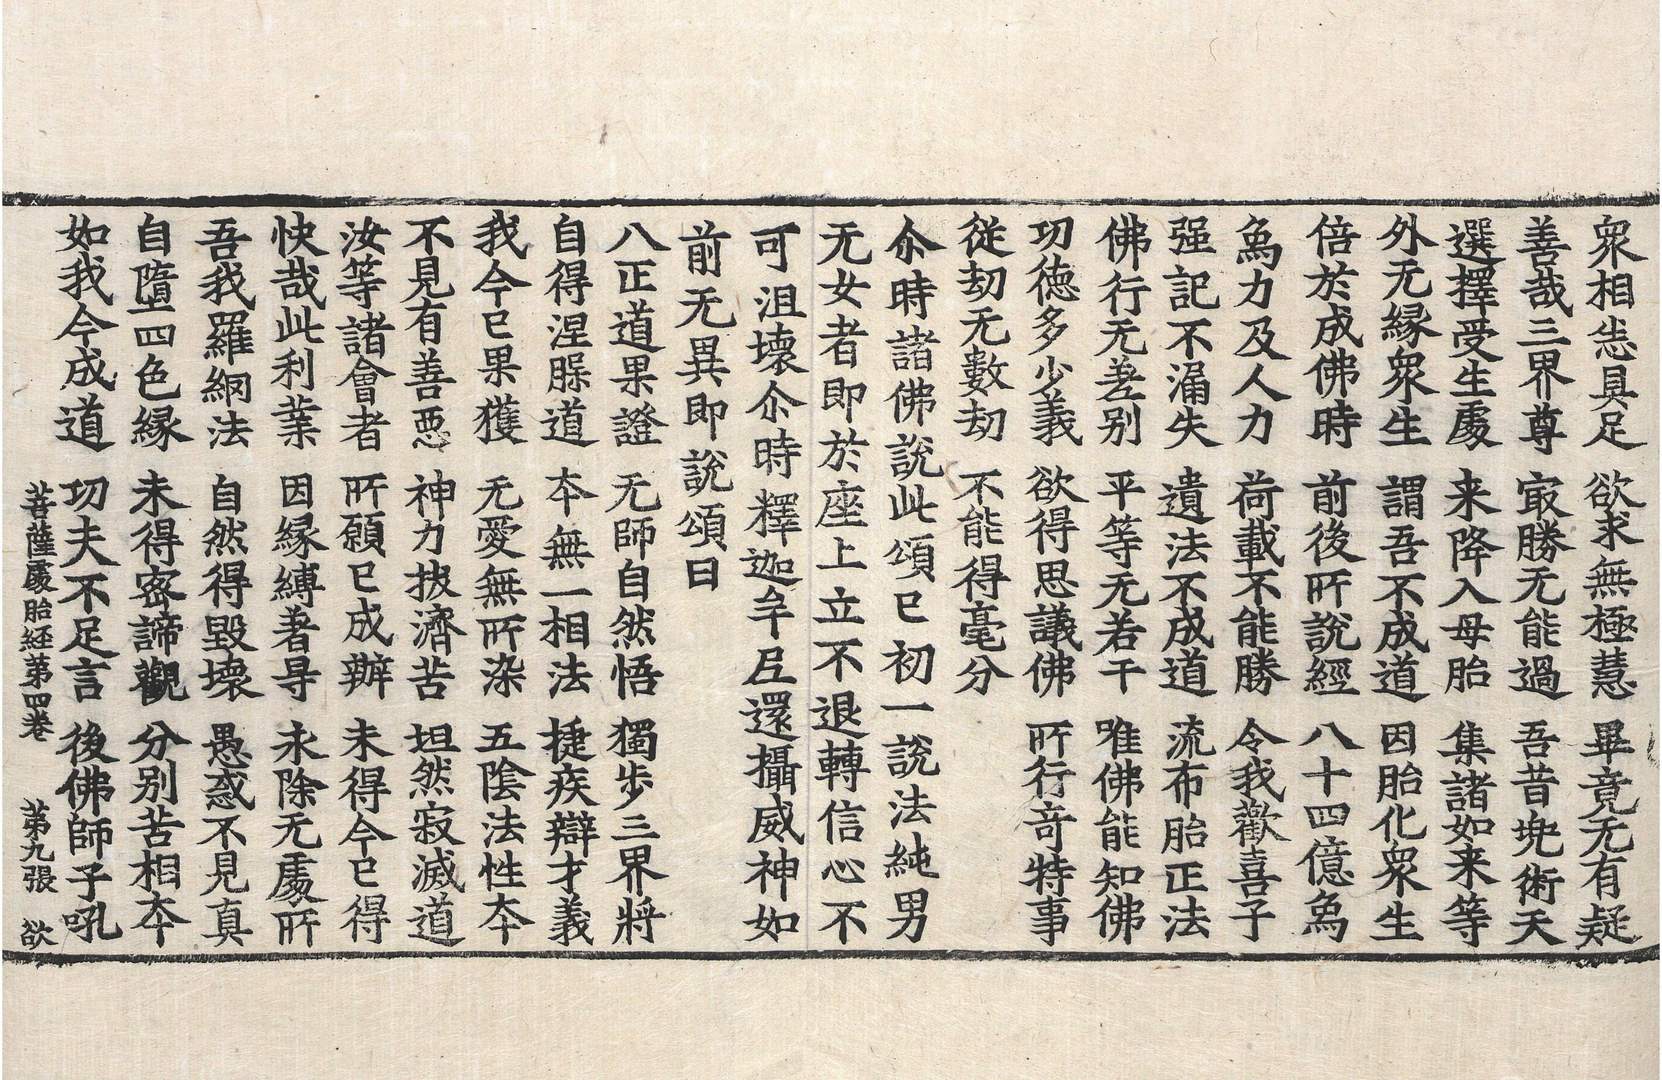 衆相悉具足 欲求無極慧 畢竟无有疑
善哉三界尊 㝡勝无能過 吾昔兠術天
選擇受生䖏 来降入母胎 集諸如来等
外无縁衆生 謂吾不成道 因胎化衆生
倍於成佛時 前後所說經 八十四億為
為力及人力 荷載不能勝 令我歡喜子
强記不漏失 遺法不成道 流布胎正法
佛行无差别 平等无若干 唯佛能知佛
功德多少義 欲得思議佛 所行竒特事
從劫无數劫 不能得毫分
尒時諸佛說此頌已初一說法純男
无女者即於座上立不退轉信心不
可沮壞尒時釋迦牟𡰱還攝威神如
前无異即說頌曰
八正道果證 无師自然悟 獨步三界將
自得涅槃道 夲無一相法 捷疾辯才義
我今已果獲 无愛無所染 五隂法性夲
不見有善惡 神力拔濟苦 坦然寂滅道
汝等諸會者 所願已成辦 未得今已得
快哉此利業 因縁縛著㝵 永除无䖏所
吾我羅網法 自然得毀壞 愚惑不見真
自墮四色縁 未得宻諦觀 分别苦相夲
如我今成道 功夫不足言 後佛師子吼
菩薩䖏胎経第四卷 第九張 欲